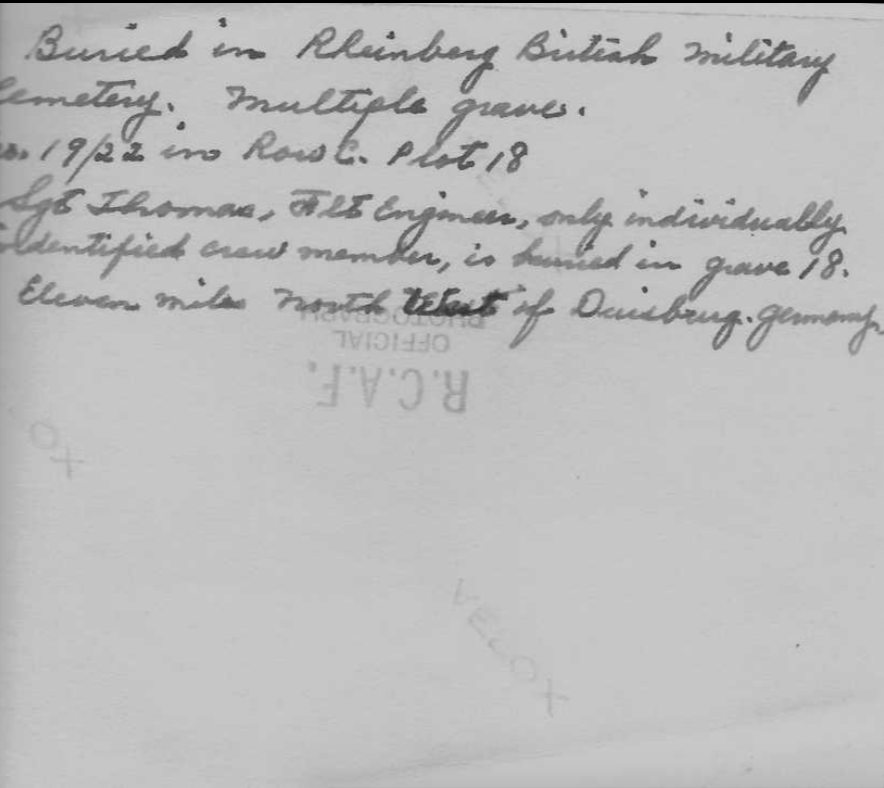 Buried in Rheinberg British Military
Cemetery. Multiple grave.
os. 19/22 in Row C. Plot 18
Sgt Thomas, Flt Engineer, only individually
identified crew member, is buried in grave 18.
Eleven miles North West of Duisbrug. Germany.
PHOTOGRAPH
OFFICIAL
R.C.A.F.
VELOX